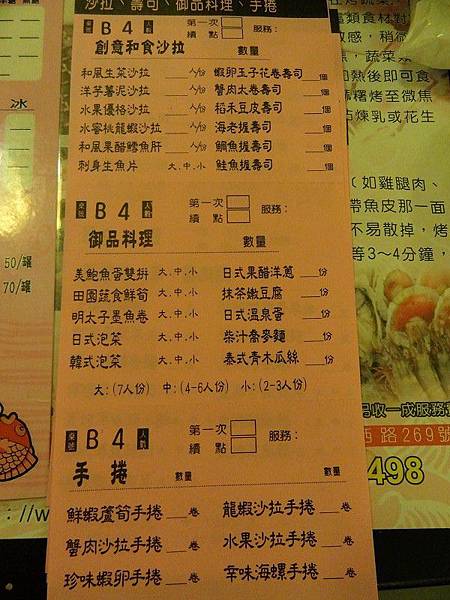 沙拉、壽司、御品料理、手捲
桌號 B 4 人數 第一次 服務：
續 點
創意和食沙拉 數量
和風生菜沙拉 __人份 蝦卵玉子花卷壽司 __個
洋芋薯泥沙拉 __人份 蟹肉太卷壽司 __個
水果優格沙拉 __人份 稻禾豆皮壽司 __個
水蜜桃龍蝦沙拉 __人份 海老握壽司 __個
和風果醋鱈魚肝 __人份 鯛魚握壽司 __個
刺身生魚片 大.中.小 鮭魚握壽司 __個
桌號 B 4 人數 第一次 服務：
續 點
御品料理 數量
美鮑魚蛋雙拼 大.中.小 日式果醋洋蔥 __份
田園蔬食鮮筍 大.中.小 抹茶嫩豆腐 __份
明太子墨魚卷 大.中.小 日式溫泉蛋 __份
日式泡菜 大.中.小 柴汁喬麥麵 __份
韓式泡菜 大.中.小 泰式青木瓜絲 __份
大:(7人份) 中:(4-6人份) 小:(2-3人份)
桌號 B 4 人數 第一次 服務：
續 點
手 捲 數量 數量
鮮蝦蘆筍手捲 __卷 龍蝦沙拉手捲 __卷
蟹肉沙拉手捲 __卷 水果沙拉手捲 __卷
珍味蝦卵手捲 __卷 辛味海螺手捲 __卷
冰
50/罐
70/罐
://w
這類食材對
敏感，稍微
，蔬菜類
加熱後即可食
麻糬烤至微焦
沾煉乳或花生
（如雞腿肉、
帶魚皮那一面
不易散掉，烤
等3～4分鐘，
另收一成服務
西路269號
498